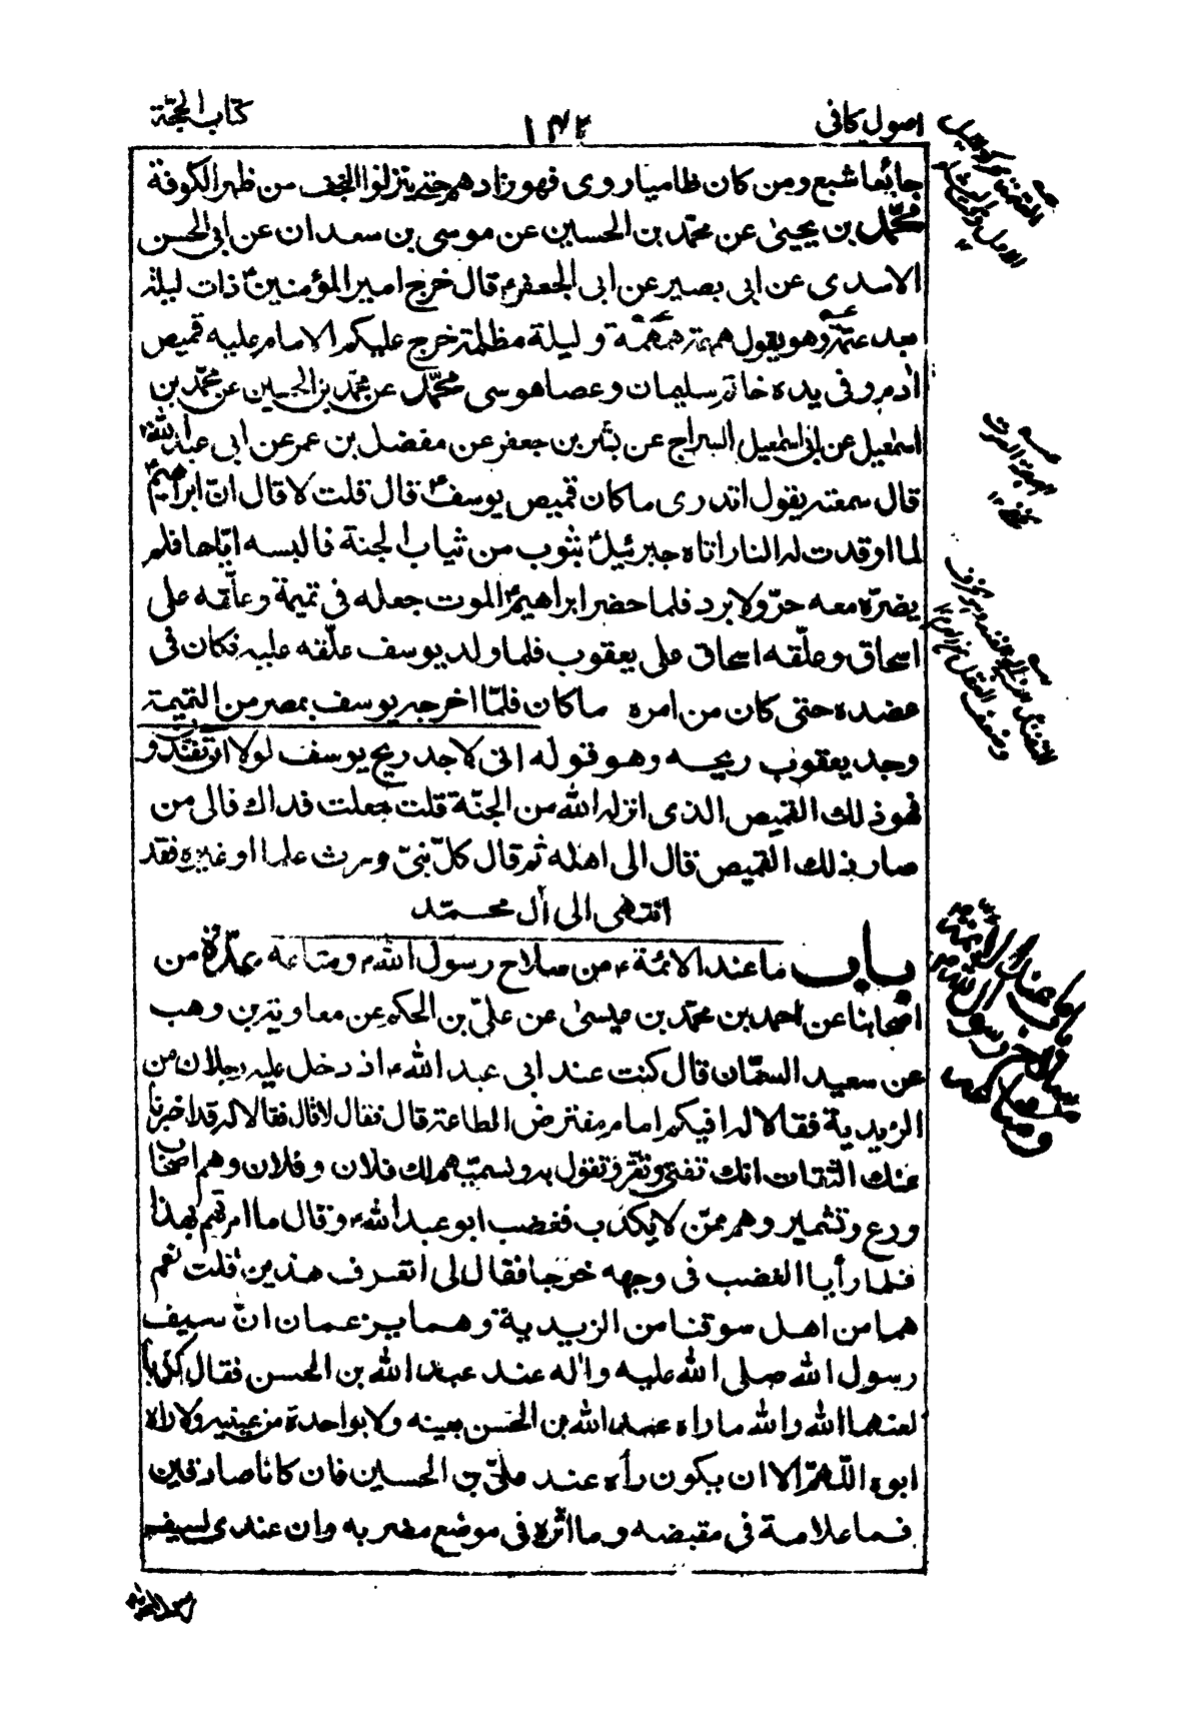 اصول كافى
١٤٢
كتاب الحجّة
جائعا شبع ومن كان ظاميا روى فهو زادهم حتى ينزلوا النجف من ظهر الكوفة
محمّد بن يحيىٰ عن محمّد بن الحسين عن موسى بن سعدان عن ابى الحسن
الاسدى عن ابى بصير عن ابى الجعفر؏ قال خرج امير المؤمنين؏ ذات ليلة
بعد عتمة وهو يقول همهمة همهمة و ليلة مظلمة خرج عليكم الامام عليه قميص
ادم وفى يده خاتم سليمان وعصا موسى محمّد عن محمّد بن الحسين عن محمّد بن
اسمٰعيل عن ابى اسمٰعيل السراج عن بشر بن جعفر عن مفضل بن عمر عن ابى عبد الله؏
قال سمعته يقول اتدرى ما كان قميص يوسف؏ قال قلت لا قال انّ ابراهيم؏
لما اوقدت له النار اتاه جبرئيل؏ بثوب من ثياب الجنة فالبسه ايّاها فلم
يضرّه معه حرّ ولا برد فلما حضر ابراهيم؏ الموت جعله فى تميمة وعلّقه على
اسحاق وعلّقه اسحاق على يعقوب فلما ولد يوسف علّقه عليه فكان فى
عضده حتى كان من امره ما كان فلمّا اخرجه يوسف بمصر من التميمة
وجد يعقوب ريحه وهو قوله انى لاجد ريح يوسف لولا ان تفنّدون
فهو ذلك القميص الذى انزله الله من الجنّة قلت جعلت فداك فالى من
صار ذلك القميص قال الى اهله ثم قال كلّ نبىّ ورث علما او غيره فقد
انتهى الى اٰل محمّد
باب ما عند الائمّة؏ من سلاح رسول الله؏ ومتاعه عدّة من
اصحابنا عن احمد بن محمّد بن عيسىٰ عن علىّ بن الحكم عن معاوية بن وهب
عن سعيد السمّان قال كنت عند ابى عبد الله؏ اذ دخل عليه رجلان من
الزيدية فقالا له افيكم امام مفترض الطاعة قال فقال لا قال فقالا له قد اخبرنا
عنك الثقات انك تفتى وتقر وتقول به ونسميهم لك فلان وفلان وهم اصحاب
ورع وتشمير وهم ممّن لا يكذب فغضب ابو عبد الله؏ وقال ما امرتهم بهذا
فلمّا رأيا الغضب فى وجهه خرجا فقال لى اتعرف هذين قلت نعم
هما من اهل سوقنا من الزيدية وهما يزعمان انّ سيف
رسول الله صلى الله عليه واٰله عند عبد الله بن الحسن فقال كذبا
لعنهما الله والله ما راه عبد الله بن الحسن بعينه ولا بواحدة من عينيه ولا راه
ابوه اللّهمّ الا ان يكون رأه عند علىّ بن الحسين فان كانا صادقين
فما علامة فى مقبضه وما اثره فى موضع مضربه وان عندى لسيف
ما عند الائمة
من سلاح رسول الله
ومتاعه